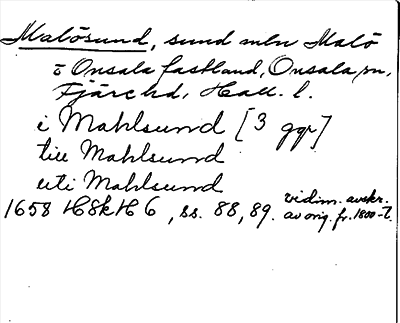 Malösund, sund mln Malö
o Onsala fastland, Onsala sn,
Fjäre hd, Hall. l.
i Mahlsund [3 ggr]
till Mahlsund
uti Mahlsund
1658 HSkH 6, ss. 88, 89. vidim. avskr.
av orig. fr. 1800-t.